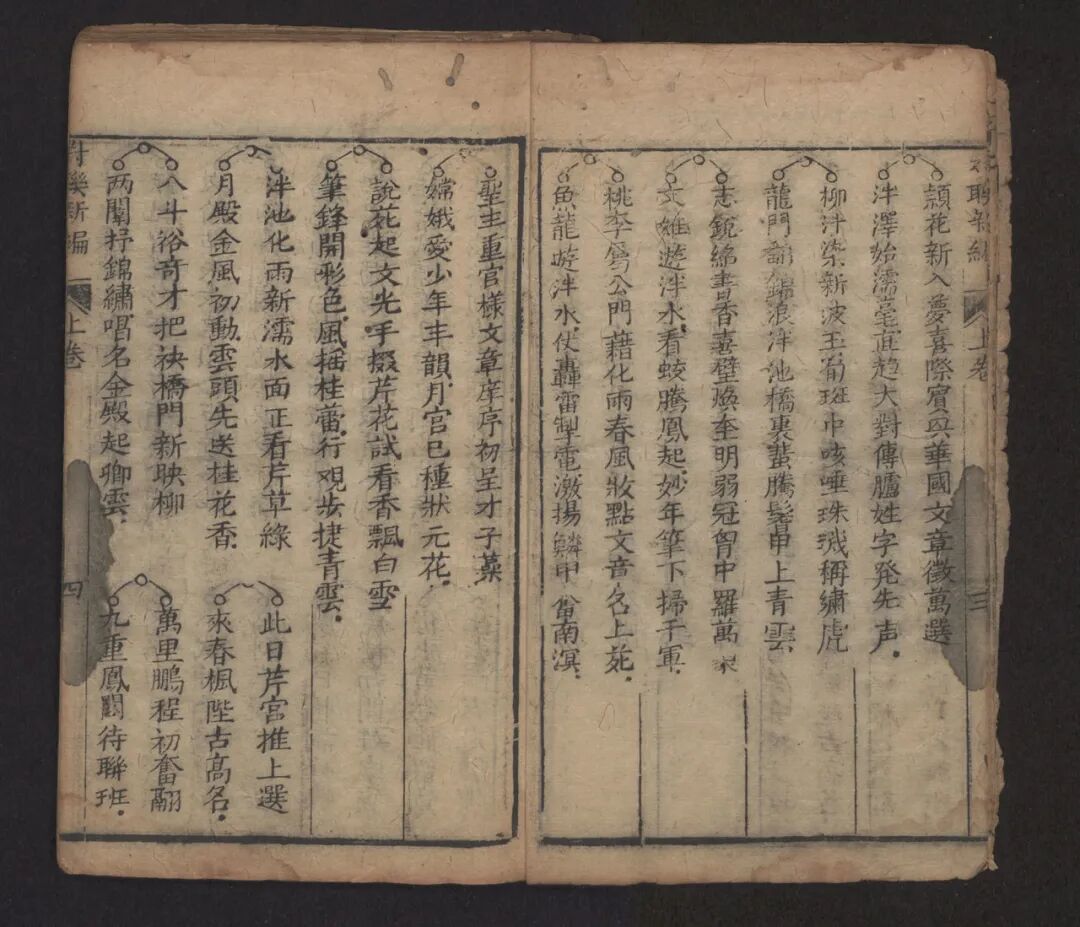 頴花新入愛喜際賓興華國文章徵萬選
泮澤始濡毫直趋大對傳臚姓字発先声
柳泮染新波玉荀班中咳唾珠璣稱繡虎
龍門翻錦浪泮池橋裏蜚騰髻甲上青雲
志銳綿書香喜壁煥奎明弱冠胷中羅萬
文雄遊泮水看蛟騰鳳起妙年筆下掃千軍
桃李属公門藉化雨春風妝點文音名上苑
魚龍遊泮水伏轟雷掣電激揚鱗甲奮南溟
三
上卷
聖主重官樣文章庠序初呈才子藻
嫦娥愛少年丰韻月宫已種狀元花
説花起文光手掇芹花試看香飄白雪
筆鋒開彩色風揺桂蕾行观步捷青雲
泮池化雨新濡水面正看芹草綠
月殿金風初動雲頭先送桂花香
此日芹宫推上選
來春楓陛占高名
八斗裕奇才把袂橋門新映柳
两闈抒錦繡唱名金殿起卿雲
萬里鵬程初奮翮
九重鳳闕待聯班
新編
上卷
四